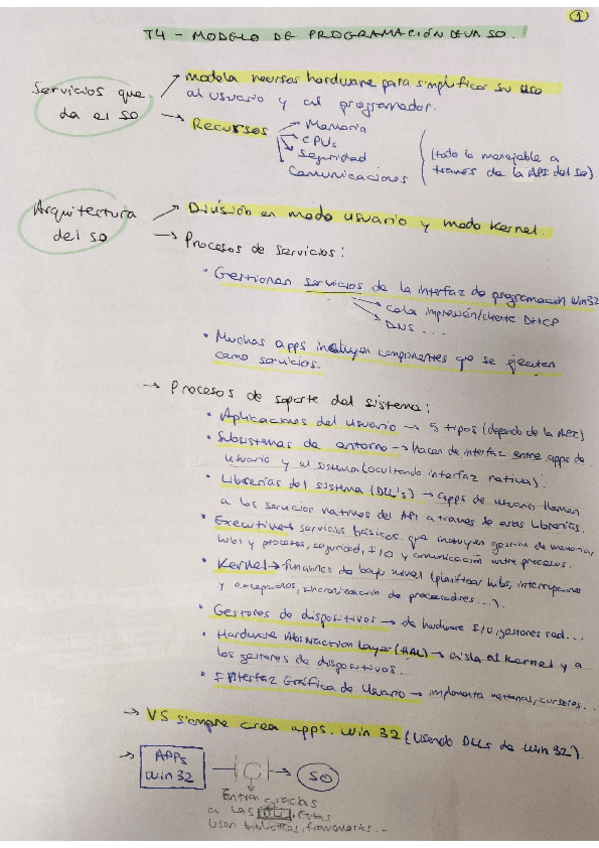 1
T4 - MODELO DE PROGRAMACIÓN DE UN SO.
Servicios que da el SO
→ modela recursos hardware para simplificar su uso
al usuario y al programador.
→ Recursos
→ Memoria
→ CPUs
→ Seguridad
Comunicaciones
(todo lo manejable a
través de la API del so).
Arquitectura del SO
→ División en modo usuario y modo Kernel.
→ Procesos de servicios:
• Gestionan servicios de la interfaz de programación Win32
→ cola impresión/cliente DHCP
→ DNS ...
• Muchas apps incluyen componentes que se ejecutan
como servicios.
→ Procesos de soporte del sistema:
• Aplicaciones del usuario → 5 tipos (depende de la API)
• Subsistemas de entorno → hacen de interfaz entre apps de
usuario y el sistema (ocultando interfaz nativa).
• Librerías del sistema (DLL's) → apps de usuario llaman
a los servicios nativos del API a través de estas librerías.
• Executive → servicios básicos que incluyen gestión de memoria,
hilos y procesos, seguridad, I/O y comunicación entre procesos.
• Kernel → funciones de bajo nivel (planificar hilos, interrupciones
y excepciones, sincronización de procesadores...).
• Gestores de dispositivos → de hardware I/O, gestores red...
• Hardware Abstraction Layer (HAL) → aisla al Kernel y a
los gestores de dispositivos.
• Interfaz Gráfica de Usuario → implementa ventanas, cursores...
→ VS siempre crea apps. Win 32 (usando DLLs de Win 32).
→ APPs
Win 32
→ SO
Entran gracias
a las DLL, estas
usan bibliotecas, frameworks...